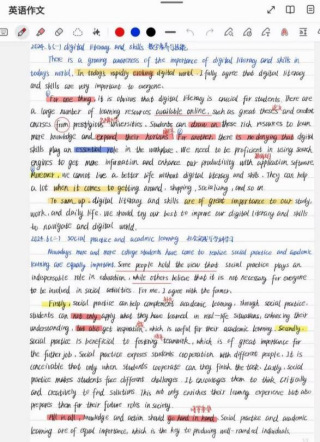 英语作文
2024.6(-) digital literacy and skills
There is a growing awareness of the importance of digital literacy and skills in
today's world. In today's rapidly evolving digital world, I fully agree that digital literacy
and skills are very important to everyone.
For one thing, it is obvious that digital literacy is crucial for students. There are
a large number of learning resources available online, such as great and online
courses from prestigious universities. Students can draw on these rich resources to learn
more knowledge and expand their horizons. For another, there is no denying that digital
skills play an essential role in the workplace. We need to be proficient in using search
engines to get more information and enhance our productivity with application software.
Moreover, we cannot live a better life without digital literacy and skills. They can help
a lot when it comes to getting around, shopping, socializing and so on.
To sum up, digital literacy and skills are of great importance to our study,
work, and daily life. We should try our best to improve our digital literacy and skills
to navigate and digital world.
2024.6(-) social practice and academic learning
Nowadays more and more college students have come to realize social practice and academic
learning are equally important. Some people hold the view that social practice plays an
indispensable role in education, while others believe that it is not necessary for everyone
to be involved in social activities. For me, I agree with the former.
Firstly, social practice can help complement academic learning. Through social practice,
students can not only apply what they have learned in real-life situations, enhancing their
understanding, but also get inspiration, which is useful for their academic learning. Secondly,
social practice is beneficial to fostering teamwork, which is of great importance for
the further job. Social practice exposes students cooperation with different people. It is
conceivable that only when students cooperate can they finish the task. Lastly, social
practice makes students face different challenges. It encourages them to think critically
and creatively to find solutions. This not only enriches their learning experience but also
prepares them for their future roles in society.
All in all, knowledge and action should go hand in hand. Social practice and academic
learning are of equal importance, which is the key to producing well-rounded individuals.